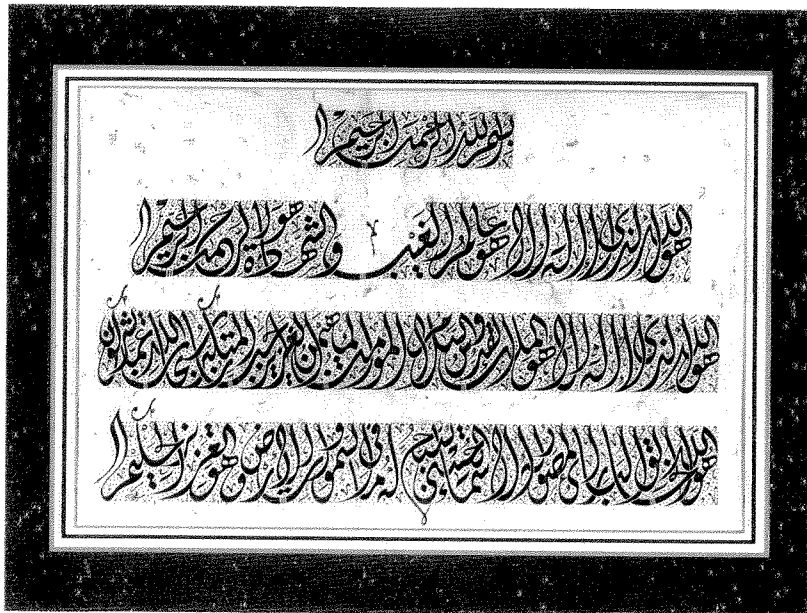 بسم الله الرحمن الرحيم
هو الله الذي لا إله إلا هو عالم الغيب والشهادة هو الرحمن الرحيم
هو الله الذي لا إله إلا هو الملك القدوس السلام المؤمن المهيمن العزيز الجبار المتكبر سبحان الله عما يشركون
هو الله الخالق البارئ المصور له الأسماء الحسنى يسبح له ما في السموات والأرض وهو العزيز الحكيم